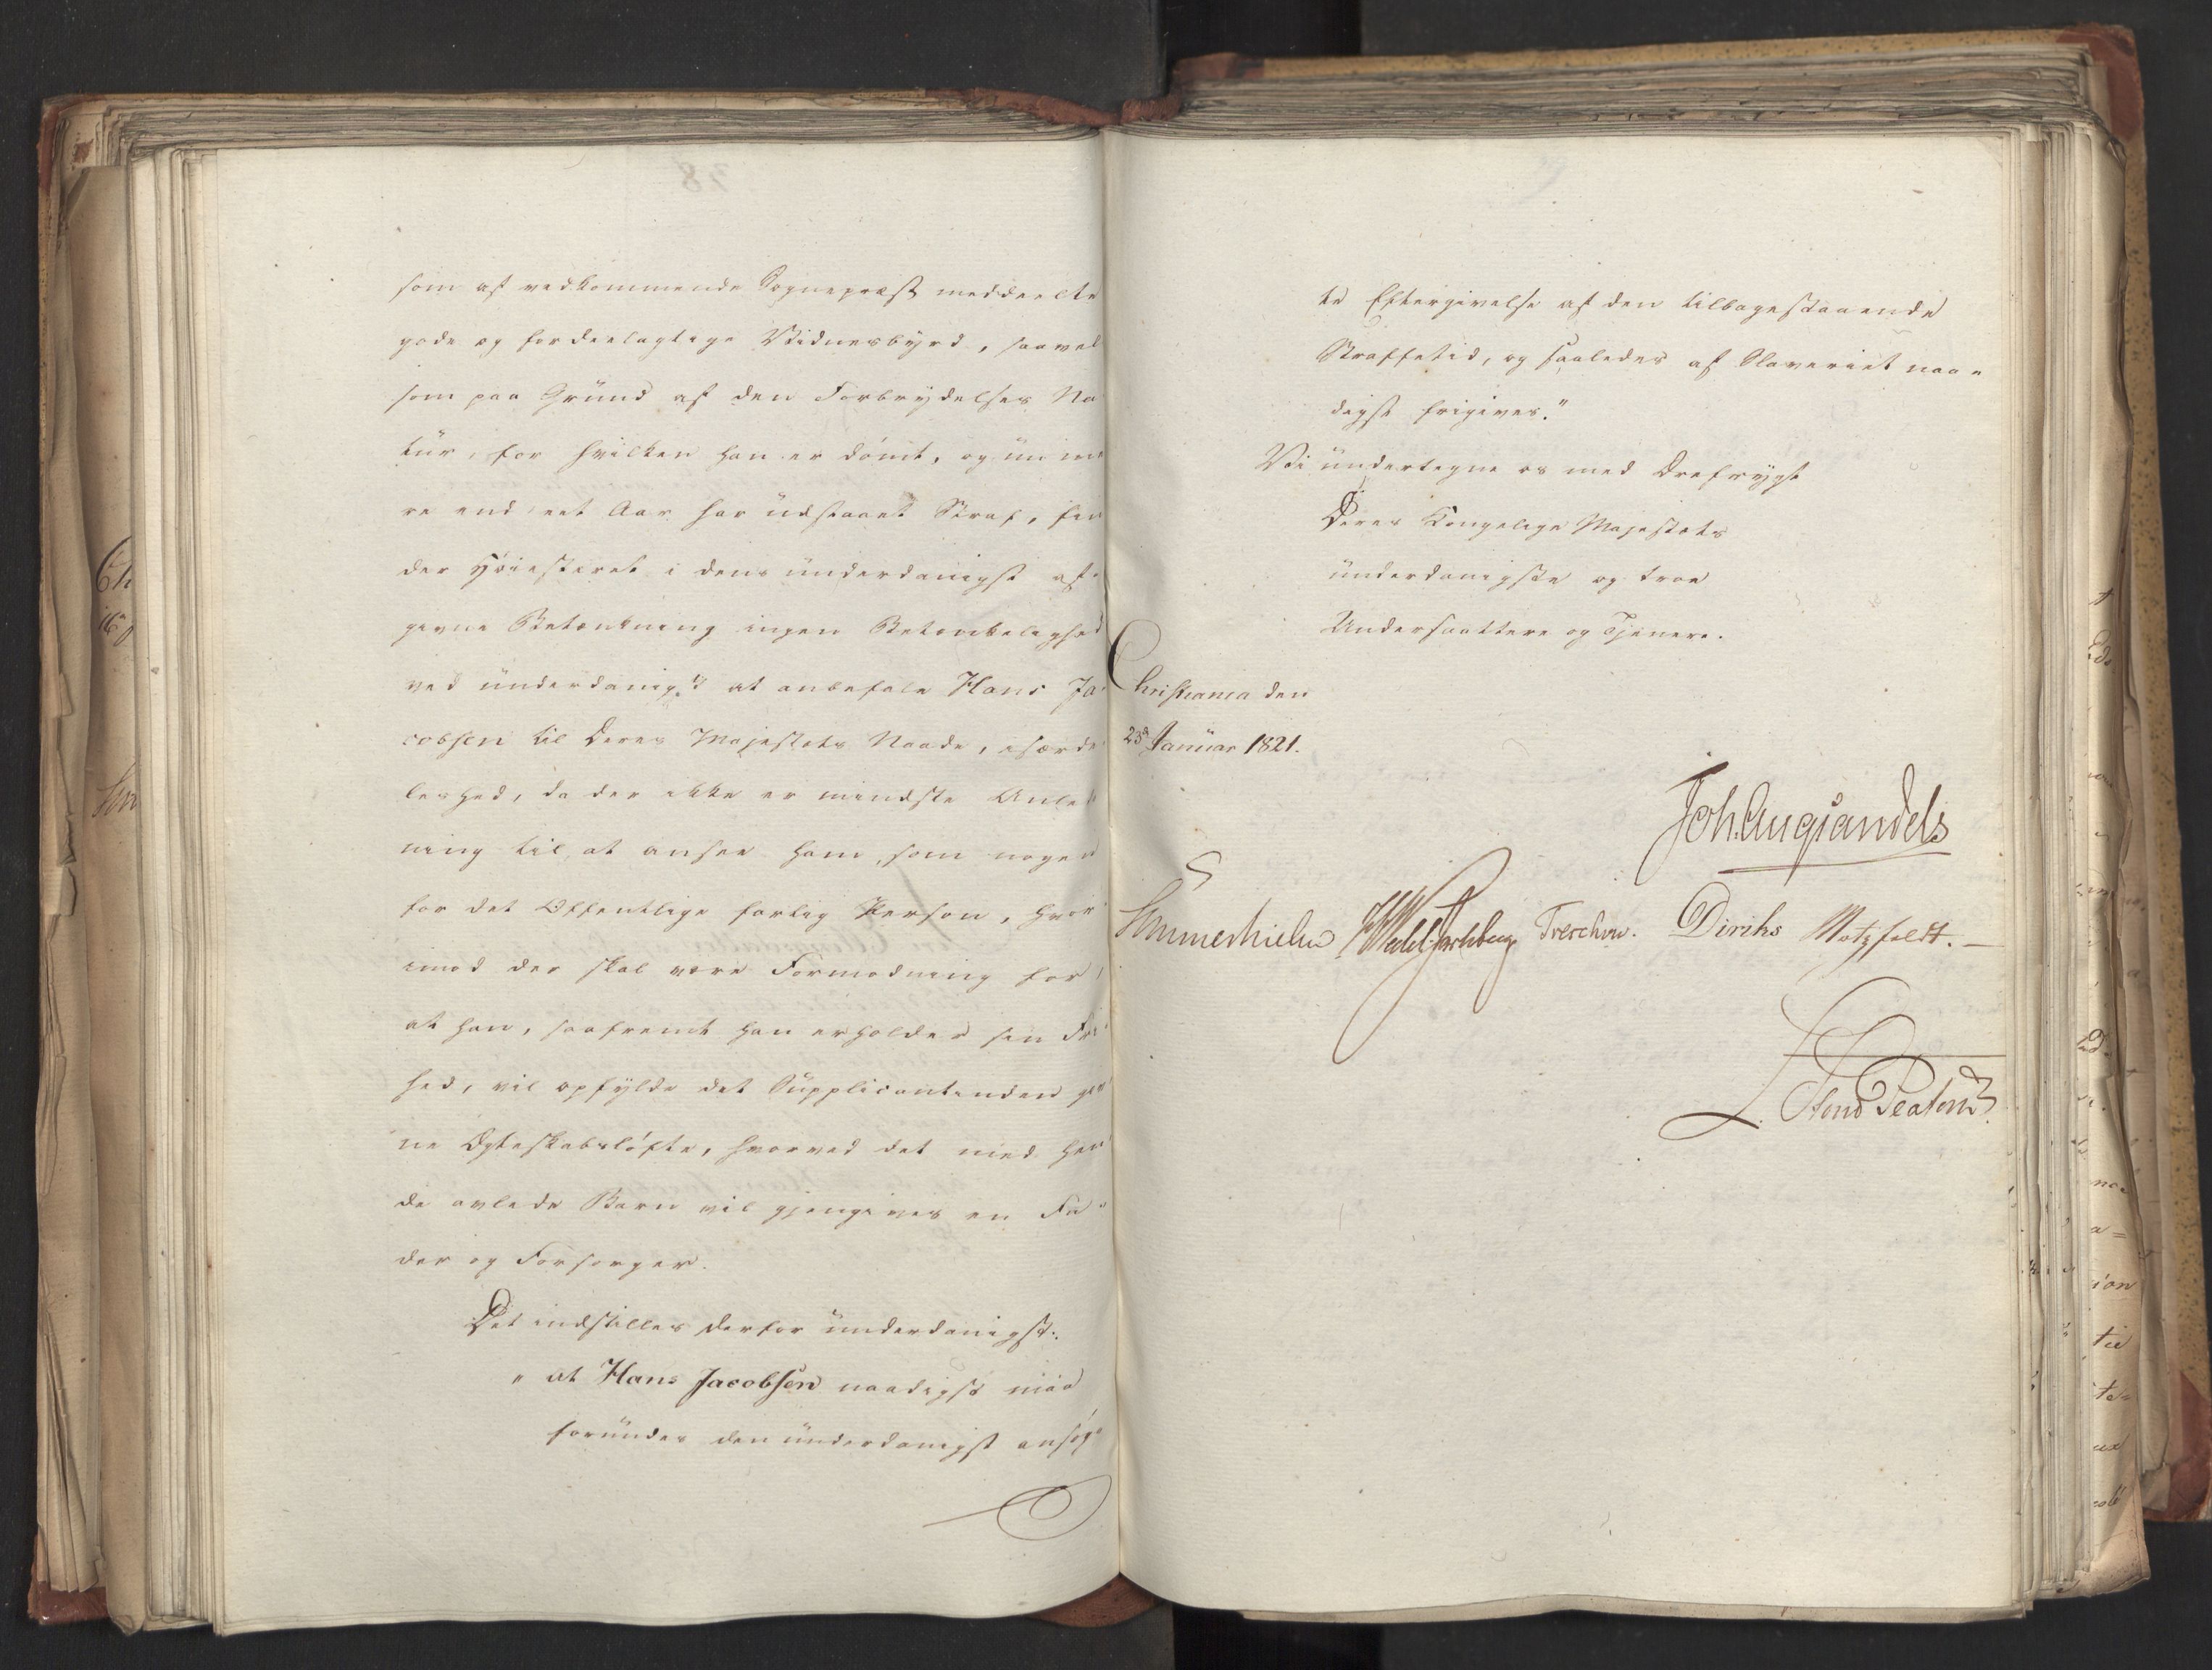 som af vedkommende Sognepræst meddeelte
gode og fordeelagtige Vidnesbyrd, saavel
som paa Grund af den Forbrydelses Na
tur, for hvilken han er dømt, og nu me
re end eet Aar har udstaaet Straf, fin
der Høiesteret i dens underdanigst af-
givne Betænkning ingen Betænkelighed
ved underdanigst at anbefale Hans Ja-
cobsen til Deres Majestæts Naade, isærde-
leshed, da der ikke er mindste Anled
ning til at ansee ham, som nogen
for det Offentlige farlig Person, hvor
imod der skal være Formodning for,
at han, saafremt han erholder sin Fri-
hed, vil opfylde det Supplicantinden giv
ne Ægteskabsløfte, hvorved det med hen
de avlede Barn vil gjengives en Fa-
der og Forsørger.
Det indstilles derfor underdanigst:
" at Hans Jacobsen naadigst maa
forundes den underdanigst ansøg-
te Eftergivelse af den tilbagestaaende
Straffetid, og saaledes af Slaveriet naa-
digst frigives."
Vi undertegne os med Ærefrygt
Deres Kongelige Majestæts
underdanigste og troe
Undersaattere og Tjenere.
Christiania den
23d Januar 1821.
Joh. Aug Sandels
Sommerhielm HWedel Jarlsberg Treschow. Diriks Motzfeldt.